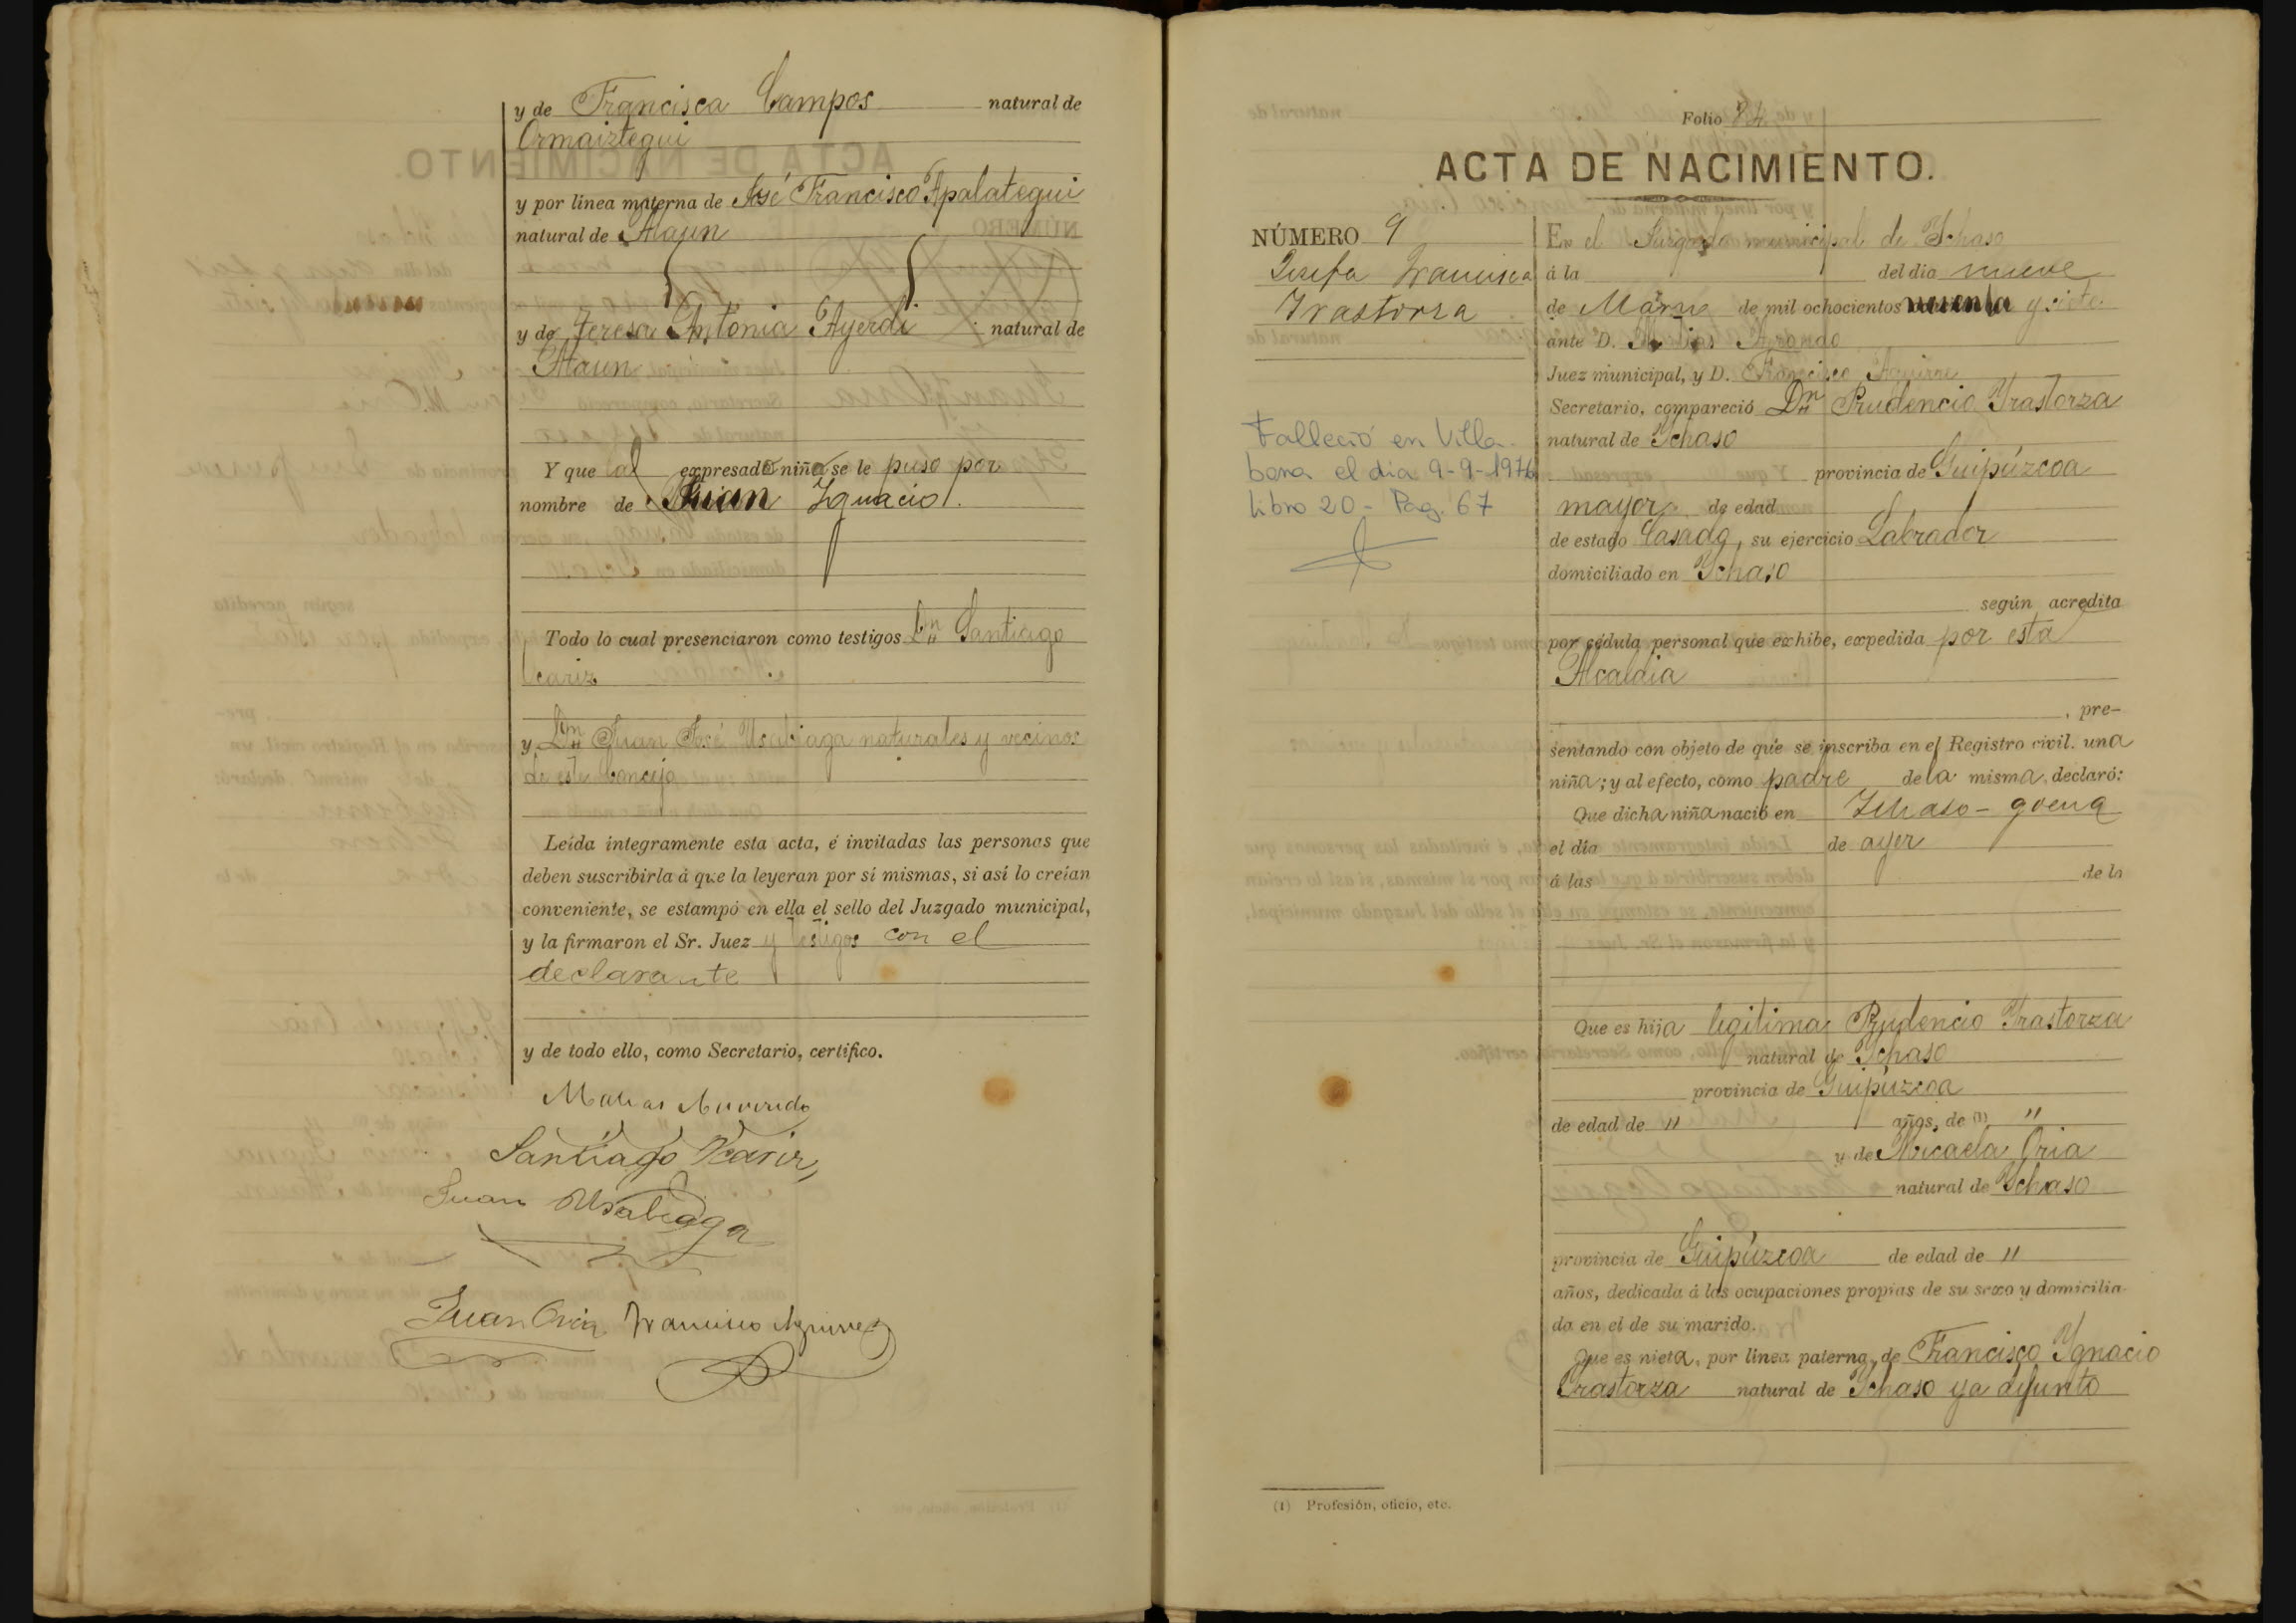 y de Francisca Campos natural de
Ormaiztegui
y por linea materna de José Francisco Apalategui
natural de Ataun
y de Teresa Antonia Ayerdi natural de
Ataun
Y que al expresado niño se le puso por
nombre de Juan Ignacio.
Todo lo cual presenciaron como testigos Dn Santiago
Ycariz
y Dn Juan José Usabiaga naturales y vecinos
de este Concejo
Leída integramente esta acta, é invitadas las personas que
deben suscribirla á que la leyeran por sí mismas, si así lo creían
conveniente, se estampó en ella el sello del Juzgado municipal,
y la firmaron el Sr. Juez y testigos con el
declarante
y de todo ello, como Secretario, certifico.
Matias
Santiago Ycariz
Juan Usabiaga
Juan Oria Francisco Aguirre
Folio 84
ACTA DE NACIMIENTO.
NÚMERO 9
Josefa Francisca
Yrastorza
Falleció en Villa-
bona el dia 9-9-1976
Libro 20 - Pag. 67
En el Juzgado municipal de Ychaso
á la del dia nueve
de Marzo de mil ochocientos noventa y siete
ante D. Matias
Juez municipal, y D. Francisco Aguirre
Secretario, compareció Dn Prudencio Yrastorza
natural de Ychaso
provincia de Guipúzcoa
mayor de edad
de estado Casado, su ejercicio Labrador
domiciliado en Ychaso
según acredita
por cédula personal que exhibe, expedida por esta
Alcaldia
, pre-
sentando con objeto de que se inscriba en el Registro civil. una
niña; y al efecto, como padre de la misma, declaró:
Que dicha niña nació en Ychaso-goena
el día de ayer
á las de la
Que es hija legitima Prudencio Yrastorza
natural de Ychaso
provincia de Guipúzcoa
de edad de " años, de (1) "
y de Micaela Oria
natural de Ychaso
provincia de Guipúzcoa de edad de "
años, dedicada á las ocupaciones propias de su sexo y domicilia-
da en el de su marido.
Que es nieta, por linea paterna, de Francisco Ygnacio
Yrastorza natural de Ychaso ya difunto
(1) Profesión, oficio, etc.